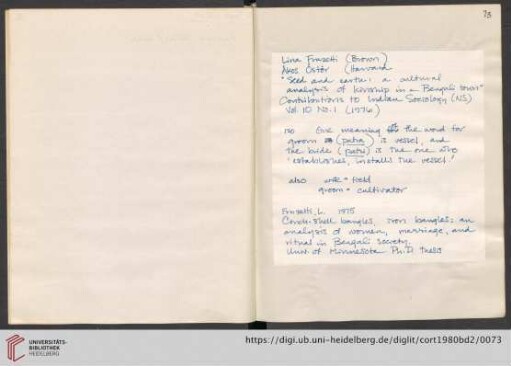 73
Lina Fruzetti (Brown)
Akos Östör (Harvard
"Seed and earth: a cultural
analysis of kinship in a Bengali town"
Contributions to Indian Sociology (NS)
Vol. 10 No. 1 (1976)
One meaning the word for
groom (patra) is vessel, and
the bride (patri) is the one who
'establishes, installs the vessel.'
also wife = field
groom = cultivator
Fruzetti, L. 1975
Conch-Shell bangles, iron bangles: an
analysis of women, marriage, and
ritual in Bengali society.
Univ. of Minnesota Ph.D thesis
UNIVERSITÄTS-
BIBLIOTHEK
HEIDELBERG
https://digi.ub.uni-heidelberg.de/diglit/cort1980bd2/0073